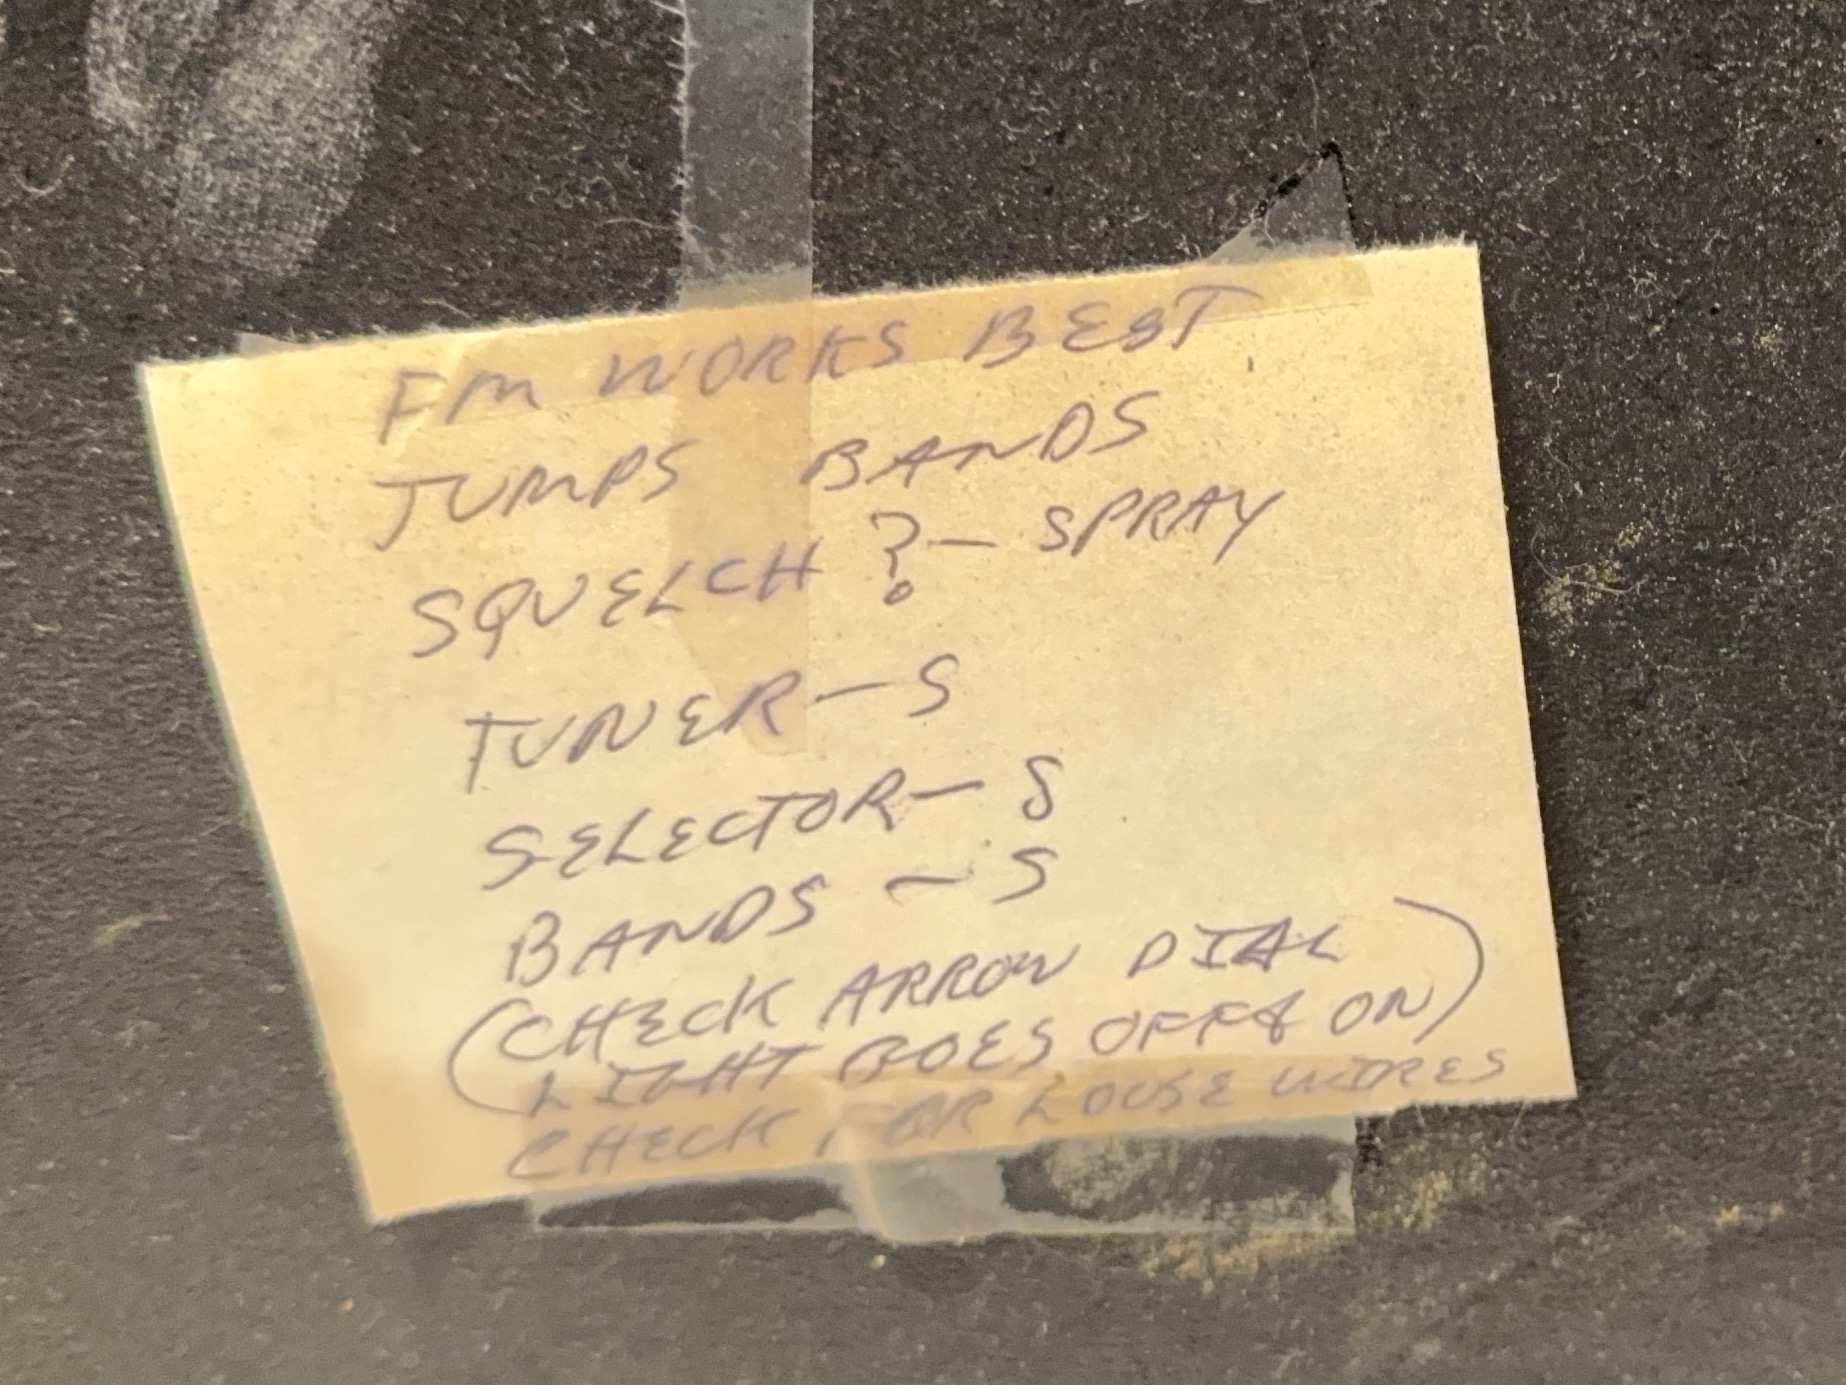 FM WORKS BEST
JUMPS BANDS
SQUELCH ? — SPRAY
TUNER — S
SELECTOR — S
BANDS — S
(CHECK ARROW DIAL
LIGHT GOES OFF & ON)
CHECK FOR LOOSE WIRES